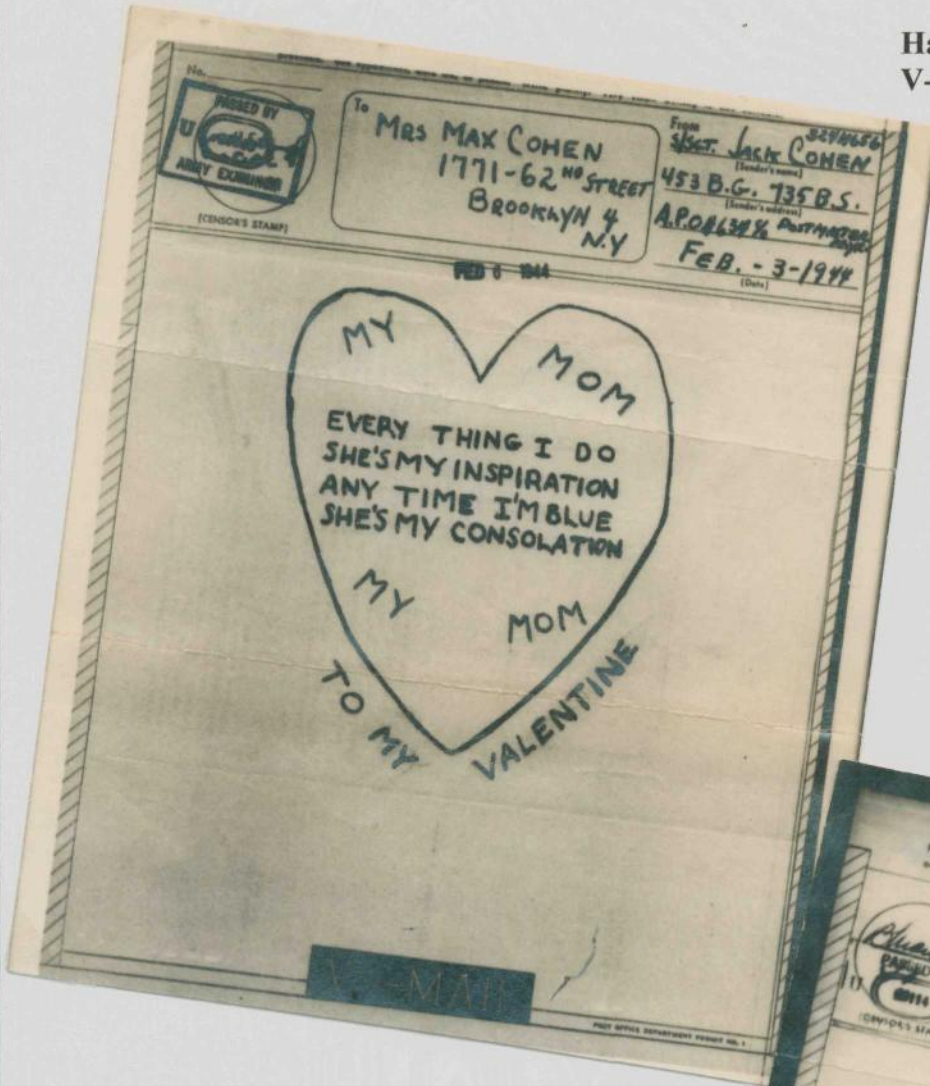 Ha
V-
No.
PASSED BY
U
ARMY EXAMINER
(CENSOR'S STAMP)
To
MRS MAX COHEN
1771-62ND STREET
BROOKLYN 4
N.Y
From
S/SGT. JACK COHEN
(Sender's name)
453 B.G. 735 B.S.
(Sender's address)
A.P.O. POSTMASTER
FEB. - 3-1944
(Date)
FEB 6 1944
MY
MOM
EVERY THING I DO
SHE'S MY INSPIRATION
ANY TIME I'M BLUE
SHE'S MY CONSOLATION
MY
MOM
TO MY
VALENTINE
V-MAIL
POST OFFICE DEPARTMENT PERMIT NO. 1
U
(CENSOR'S